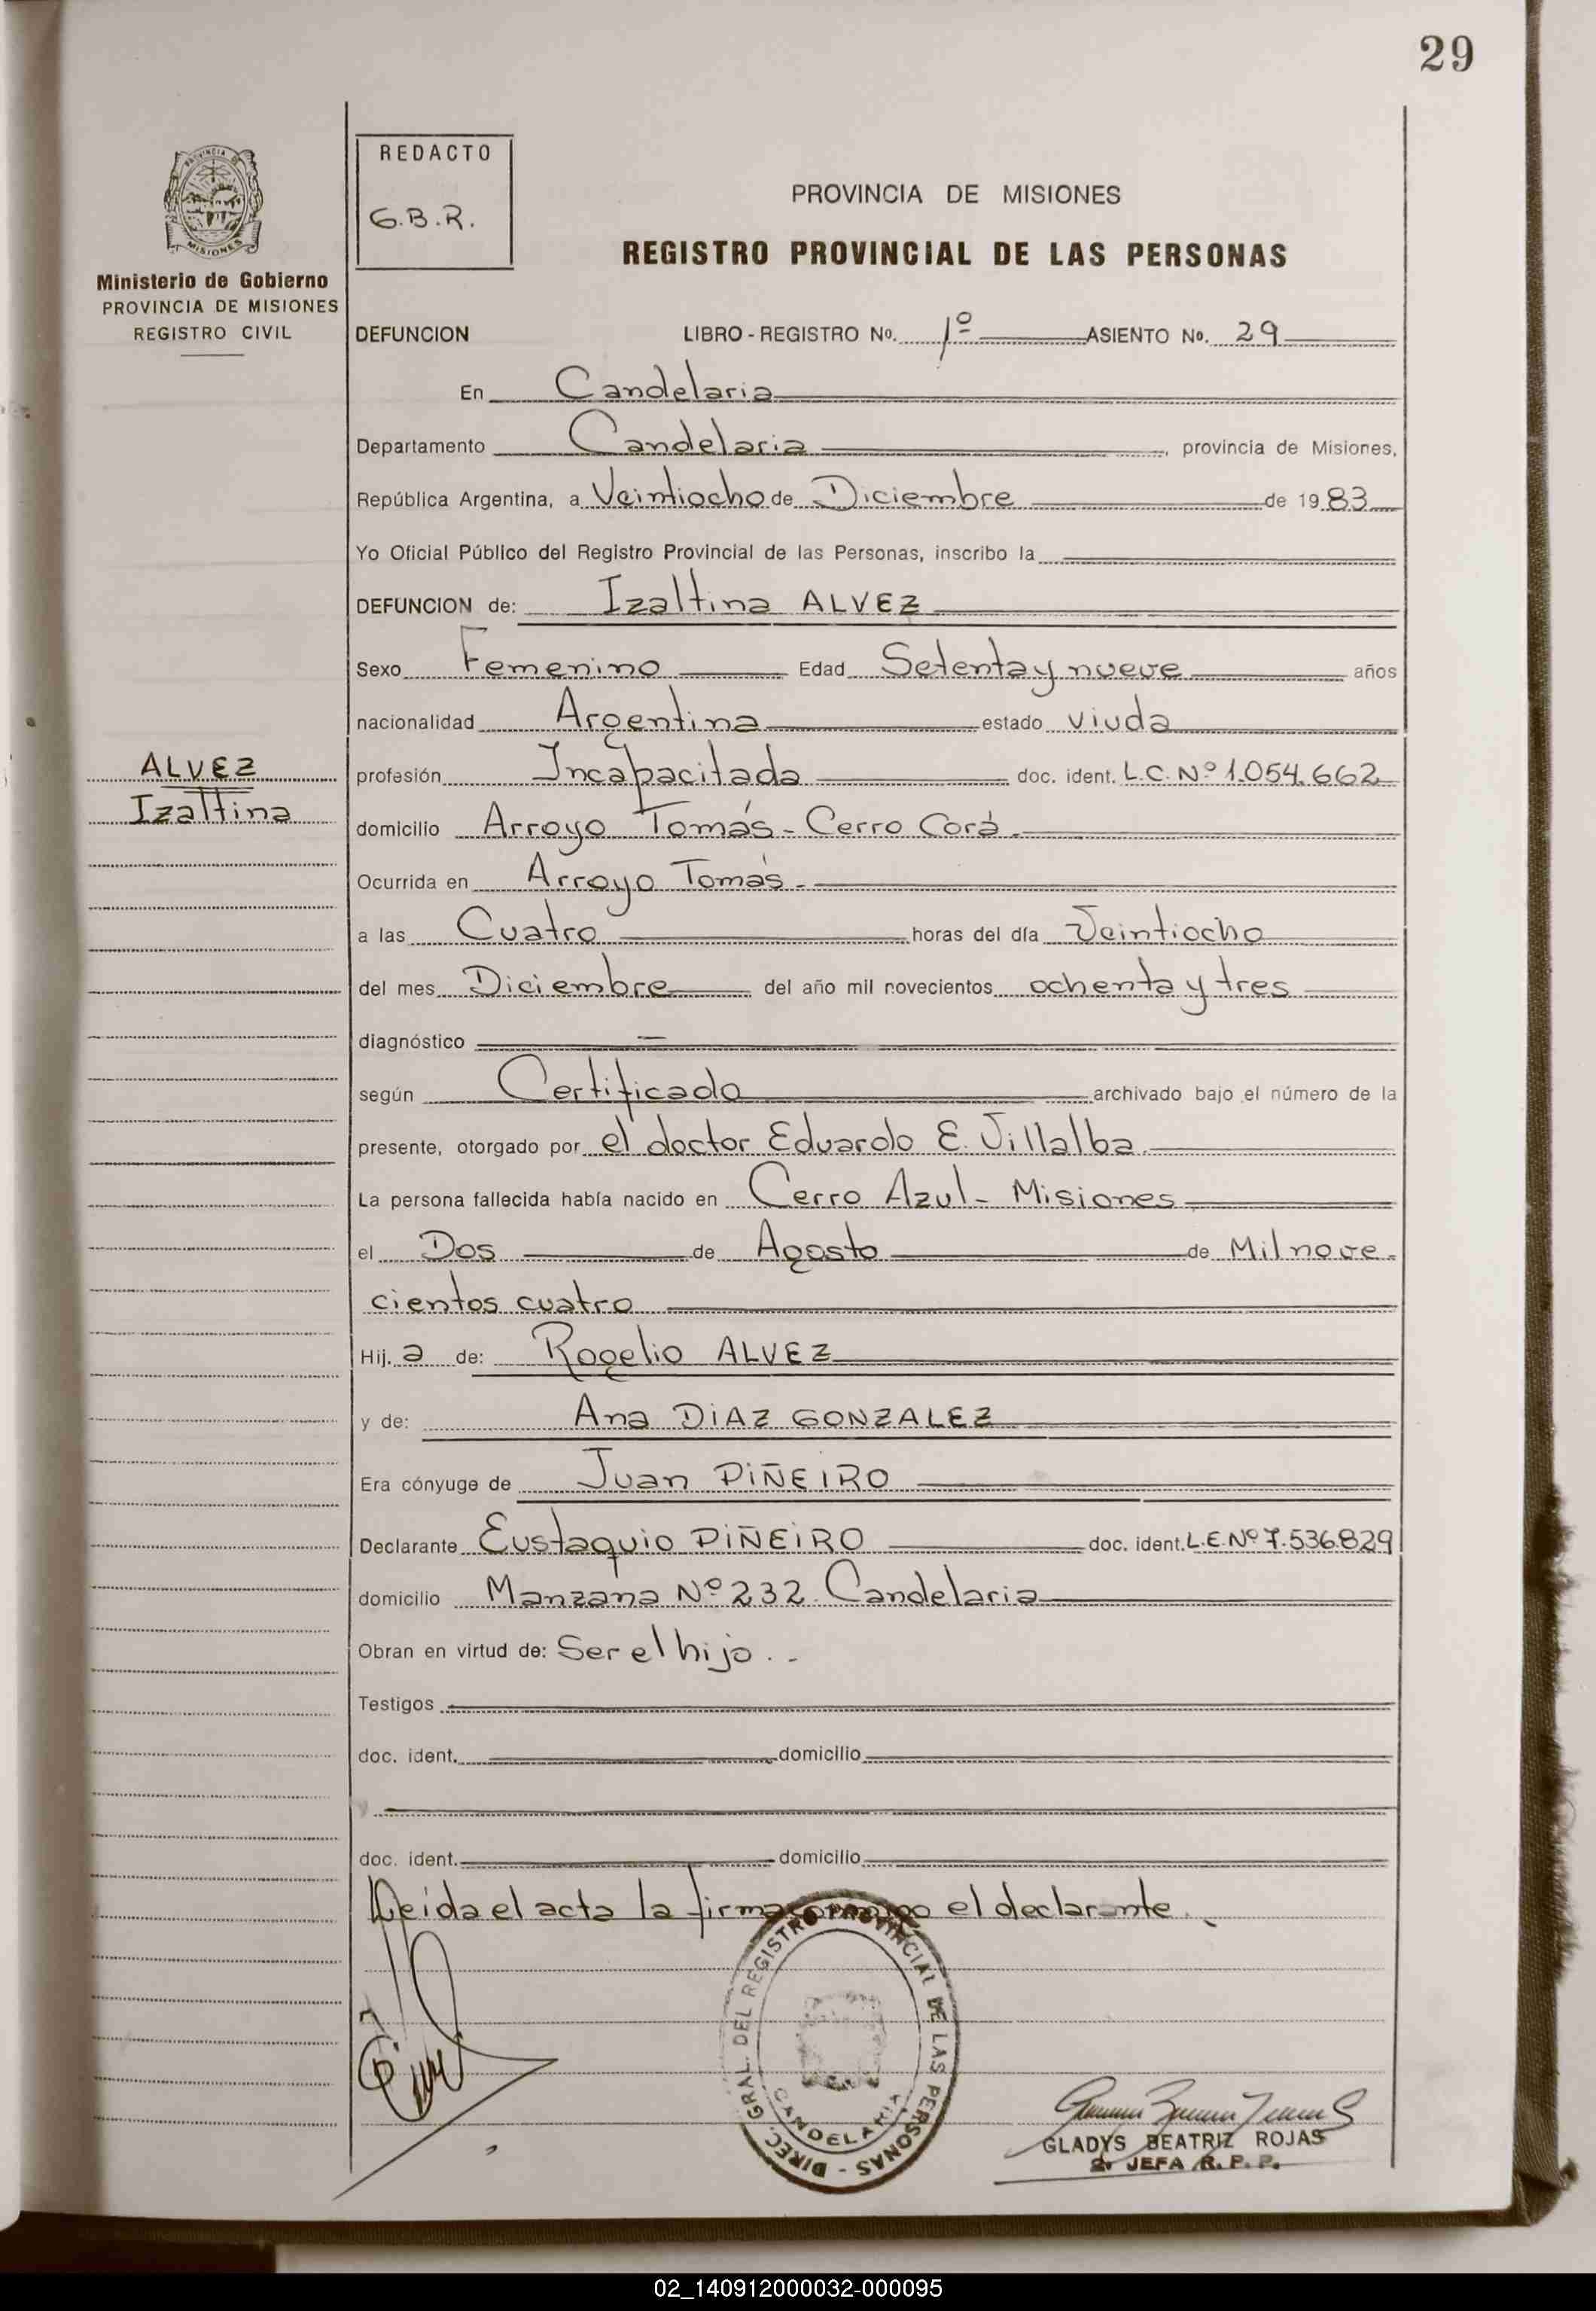 29
REDACTO
G.B.R.
PROVINCIA DE
MISIONES
Ministerio de Gobierno
PROVINCIA DE MISIONES
REGISTRO CIVIL
PROVINCIA DE MISIONES
REGISTRO PROVINCIAL DE LAS PERSONAS
DEFUNCION LIBRO - REGISTRO No. 1º ASIENTO No. 29
En Candelaria
Departamento Candelaria, provincia de Misiones,
República Argentina, a Veintiocho de Diciembre de 1983
Yo Oficial Público del Registro Provincial de las Personas, inscribo la
DEFUNCION de: Izaltina ALVEZ
Sexo Femenino Edad Setenta y nueve años
nacionalidad Argentina estado viuda
ALVEZ
Izaltina
profesión Incapacitada doc. ident. L.C. Nº 1.054.662
domicilio Arroyo Tomás - Cerro Corá.
Ocurrida en Arroyo Tomás -
a las Cuatro horas del día Veintiocho
del mes Diciembre del año mil novecientos ochenta y tres
diagnóstico —
según Certificado archivado bajo el número de la
presente, otorgado por el doctor Eduardo E. Villalba.
La persona fallecida había nacido en Cerro Azul - Misiones
el Dos de Agosto de Mil nove-
cientos cuatro
Hij.a de: Rogelio ALVEZ
y de: Ana DIAZ GONZALEZ
Era cónyuge de Juan PIÑEIRO
Declarante Eustaquio PIÑEIRO doc. ident. L.E. Nº 7.536.829
domicilio Manzana Nº 232. Candelaria
Obran en virtud de: Ser el hijo . -
Testigos
doc. ident. domicilio
doc. ident. domicilio
Leida el acta la firma conmigo el declarante.
DIREC. GRAL. DEL REGISTRO PROVINCIAL DE LAS PERSONAS -
CANDELARIA
GLADYS BEATRIZ ROJAS
JEFA R. P. P.
02_140912000032-000095